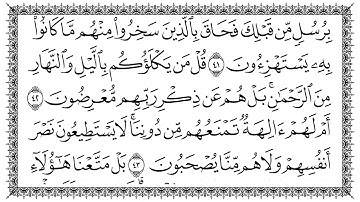 بِرُسُلٍ مِّن قَبْلِكَ فَحَاقَ بِالَّذِينَ سَخِرُوا۟ مِنْهُم مَّا كَانُوا۟
بِهِۦ يَسْتَهْزِءُونَ ٤١ قُلْ مَن يَكْلَؤُكُم بِالَّيْلِ وَالنَّهَارِ
مِنَ الرَّحْمَٰنِ ۗ بَلْ هُمْ عَن ذِكْرِ رَبِّهِم مُّعْرِضُونَ ٤٢
أَمْ لَهُمْ ءَالِهَةٌ تَمْنَعُهُم مِّن دُونِنَا ۚ لَا يَسْتَطِيعُونَ نَصْرَ
أَنفُسِهِمْ وَلَا هُم مِّنَّا يُصْحَبُونَ ٤٣ بَلْ مَتَّعْنَا هَٰٓؤُلَآءِ